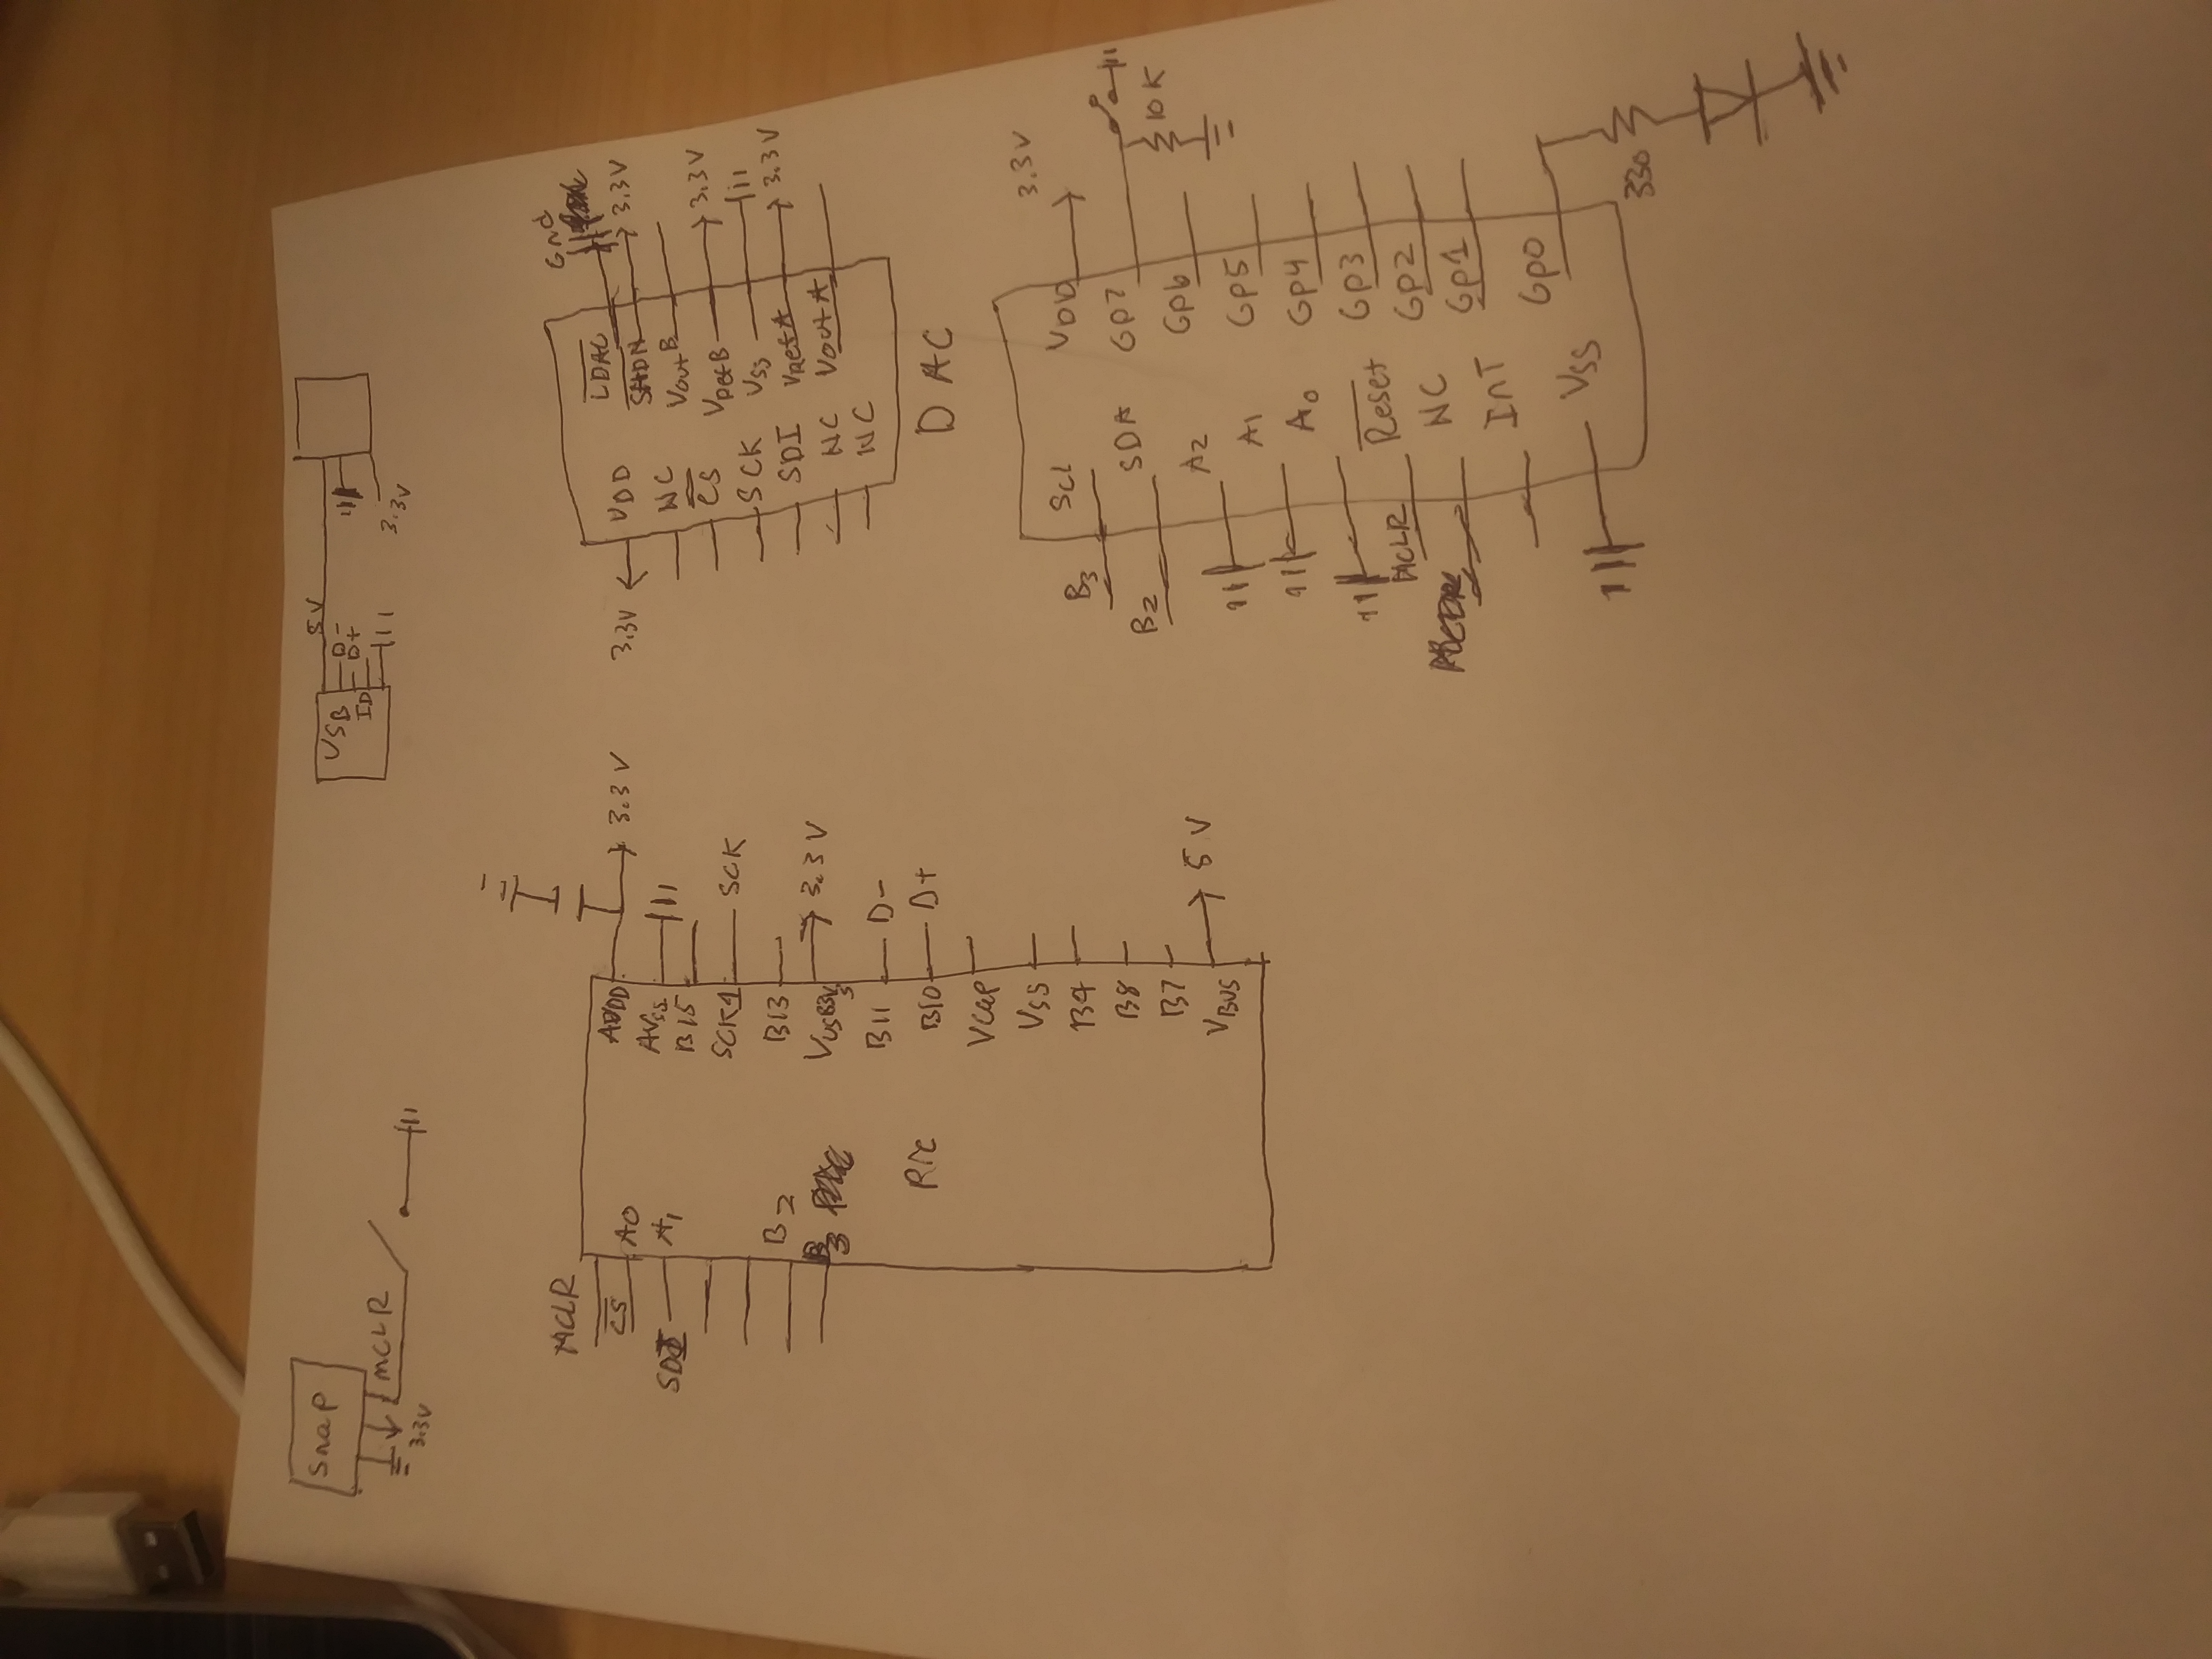 Snap
MCLR
3.3V
USB
D-
D+
ID
5V
3.3V
MCLR
CS
A0
SDI
A1
B2
B3
PIC
AVDD
3.3V
AVSS
B15
SCK1
SCK
B13
VUSB3V3
3.3V
B11
D-
B10
D+
VCap
VSS
B9
B8
B7
VBUS
5V
3.3V
VDD
NC
CS
SCK
SDI
NC
NC
LDAC
Gnd
SHDN
3.3V
VoutB
VRefB
3.3V
VSS
VRefA
3.3V
VoutA
DAC
B3
Scl
B2
SDA
A2
A1
A0
MCLR
Reset
NC
InT
VSS
VDD
3.3V
GP7
10K
GP6
GP5
GP4
GP3
GP2
GP1
GP0
330